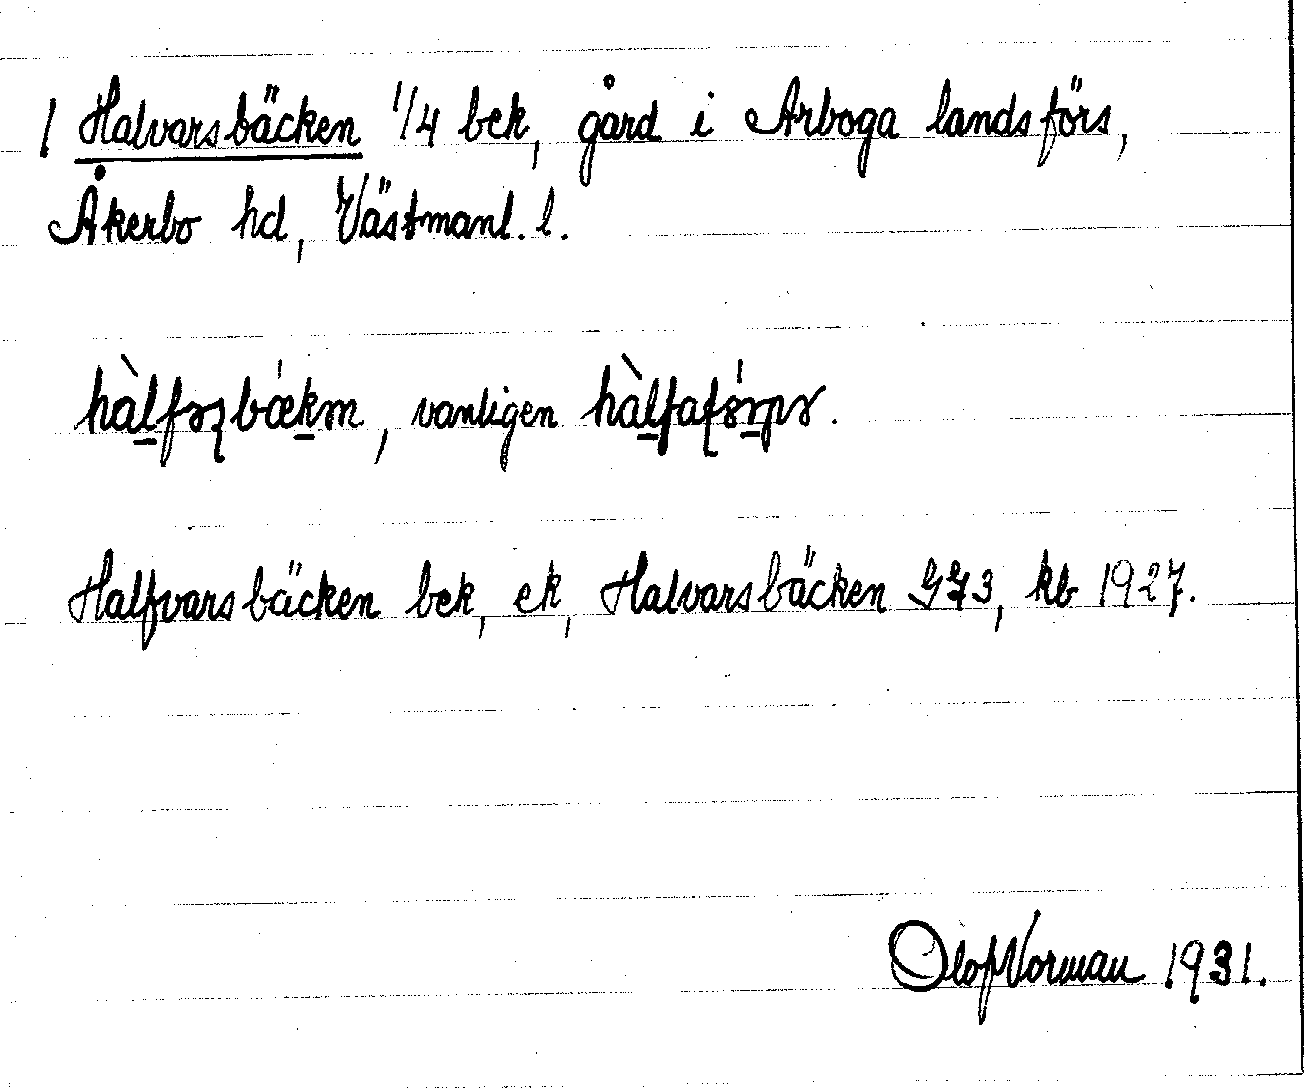 1 Halvarsbäcken 1/4 bek, gård i Arboga landsförs,
Åkerbo hd, Västmanl. l.
vanligen
Halfvarsbäcken bek, ek, Halvarsbäcken GEB, kb 1927.
Olof Vorman 1931.